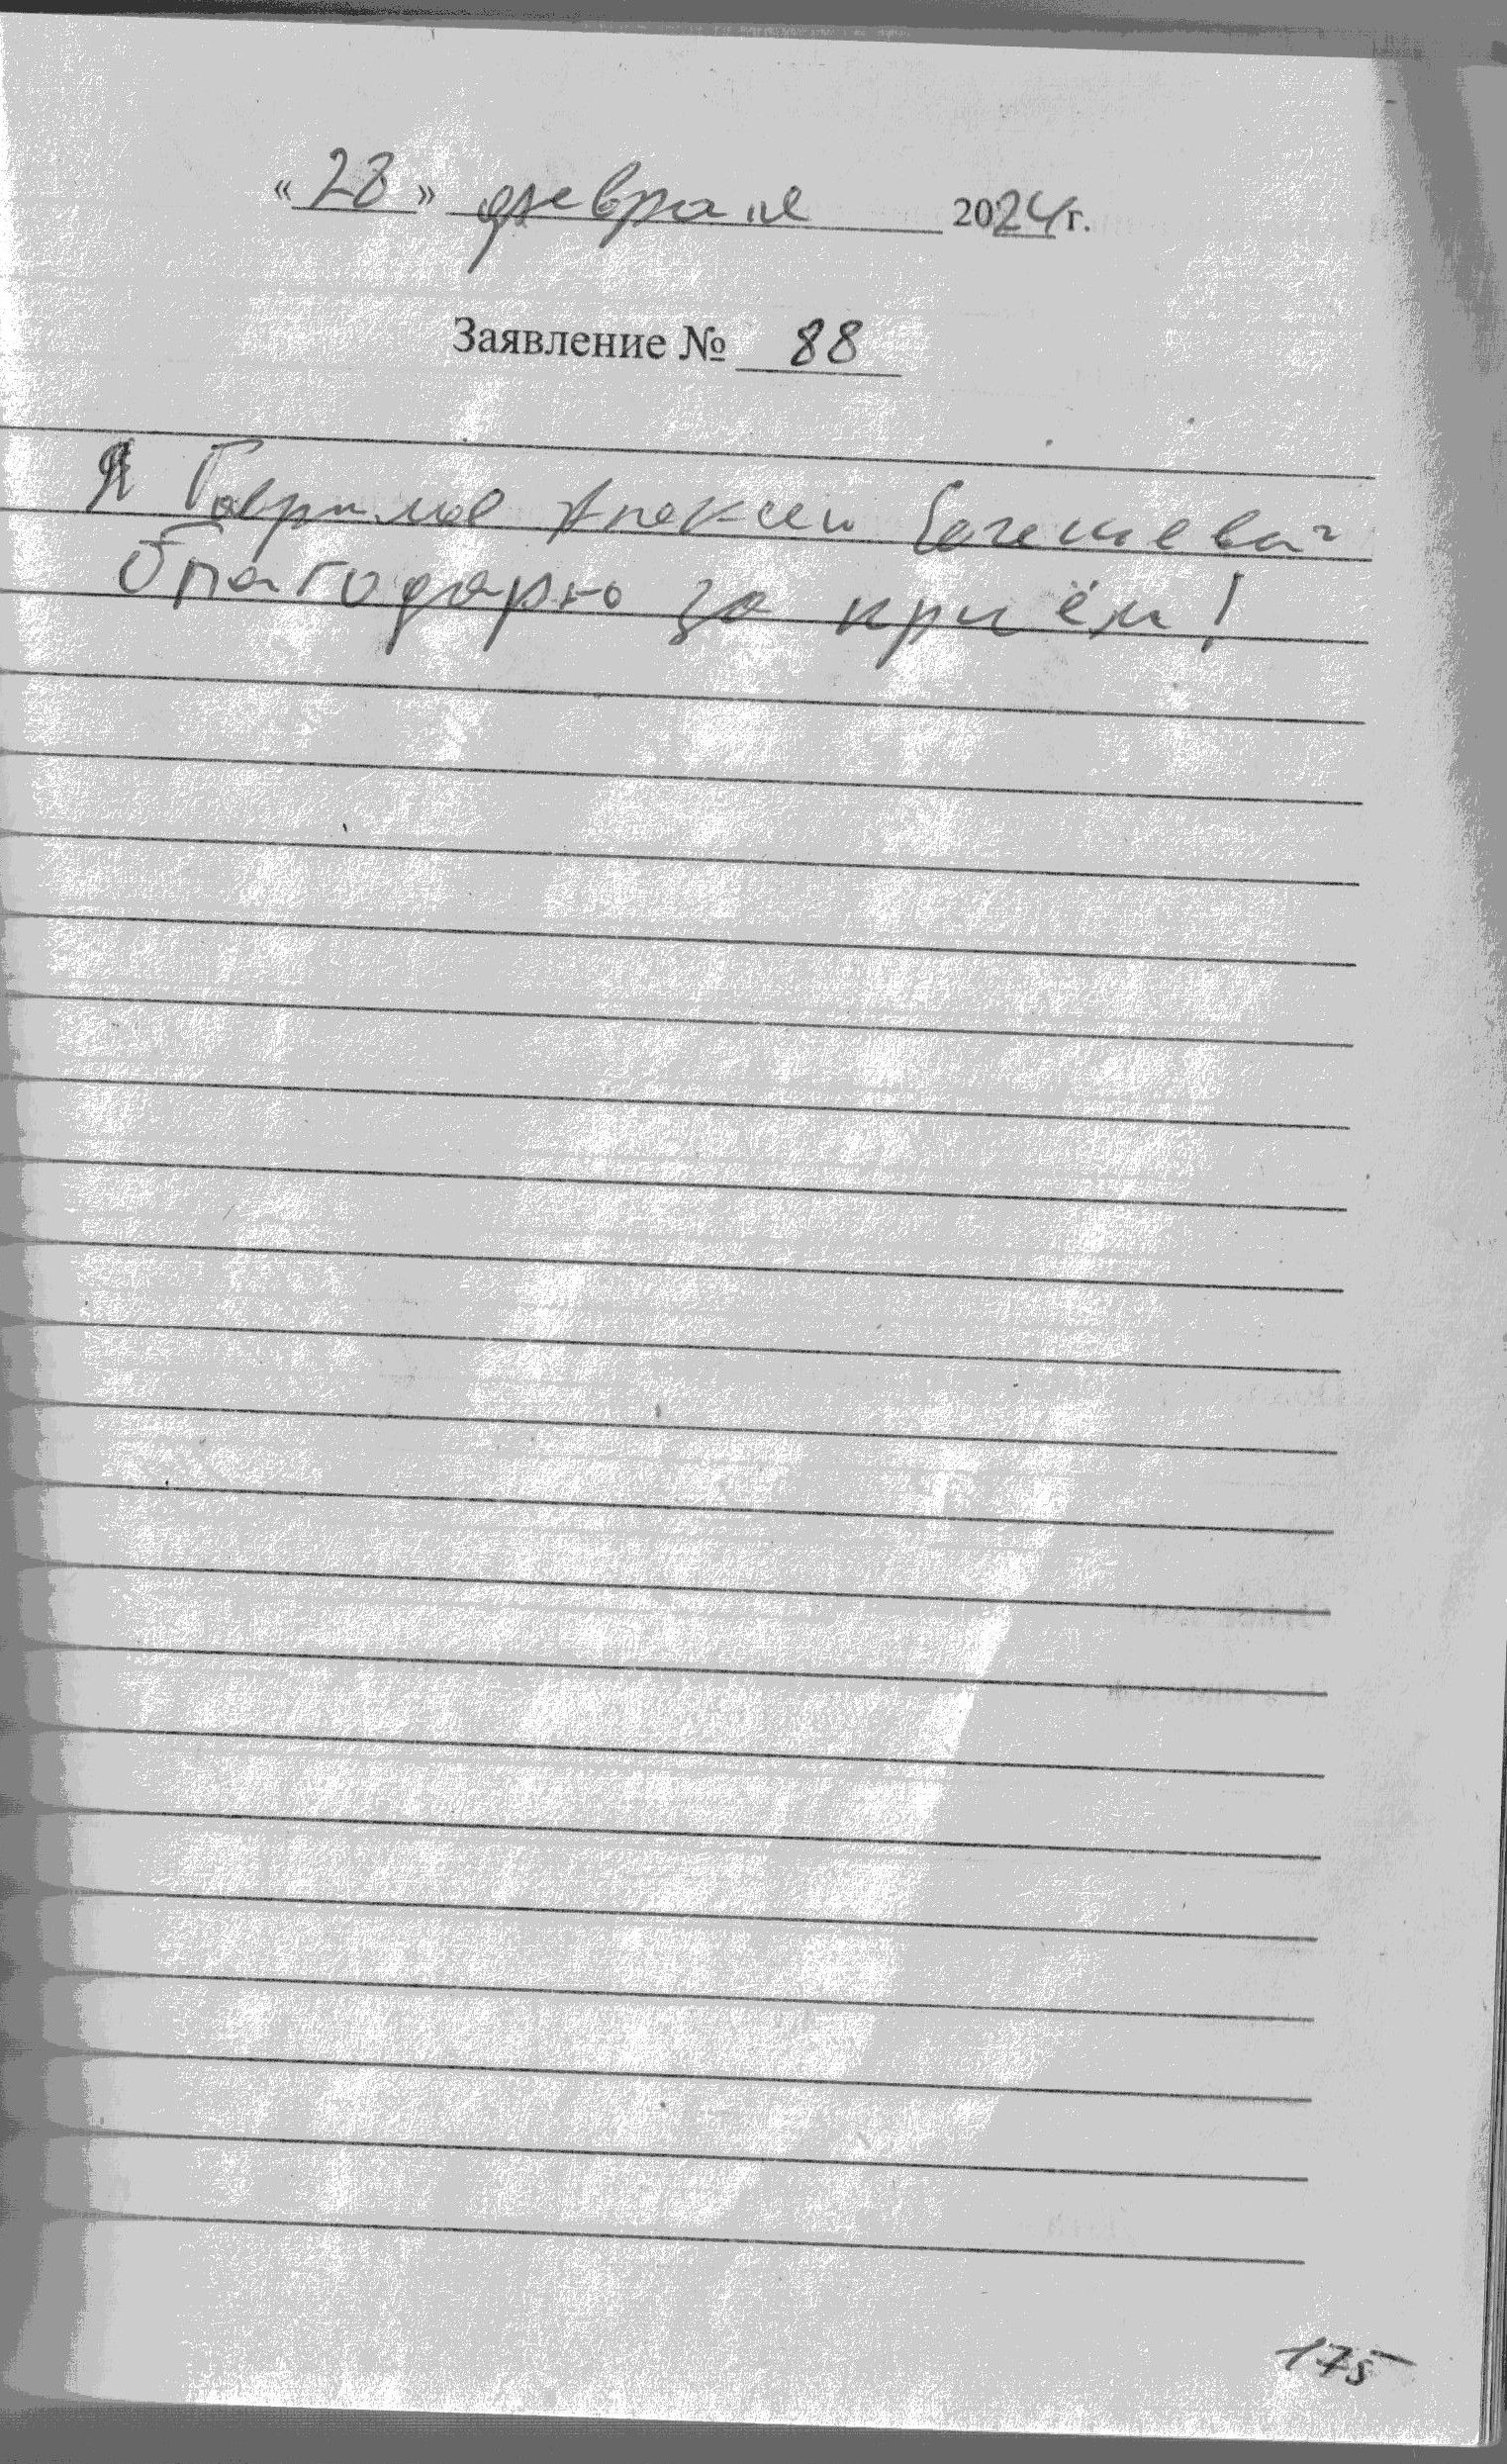 «28» февраля 2024 г.
Заявление № 88
Я Гаврилов Алексей
благодарю за приём!
175